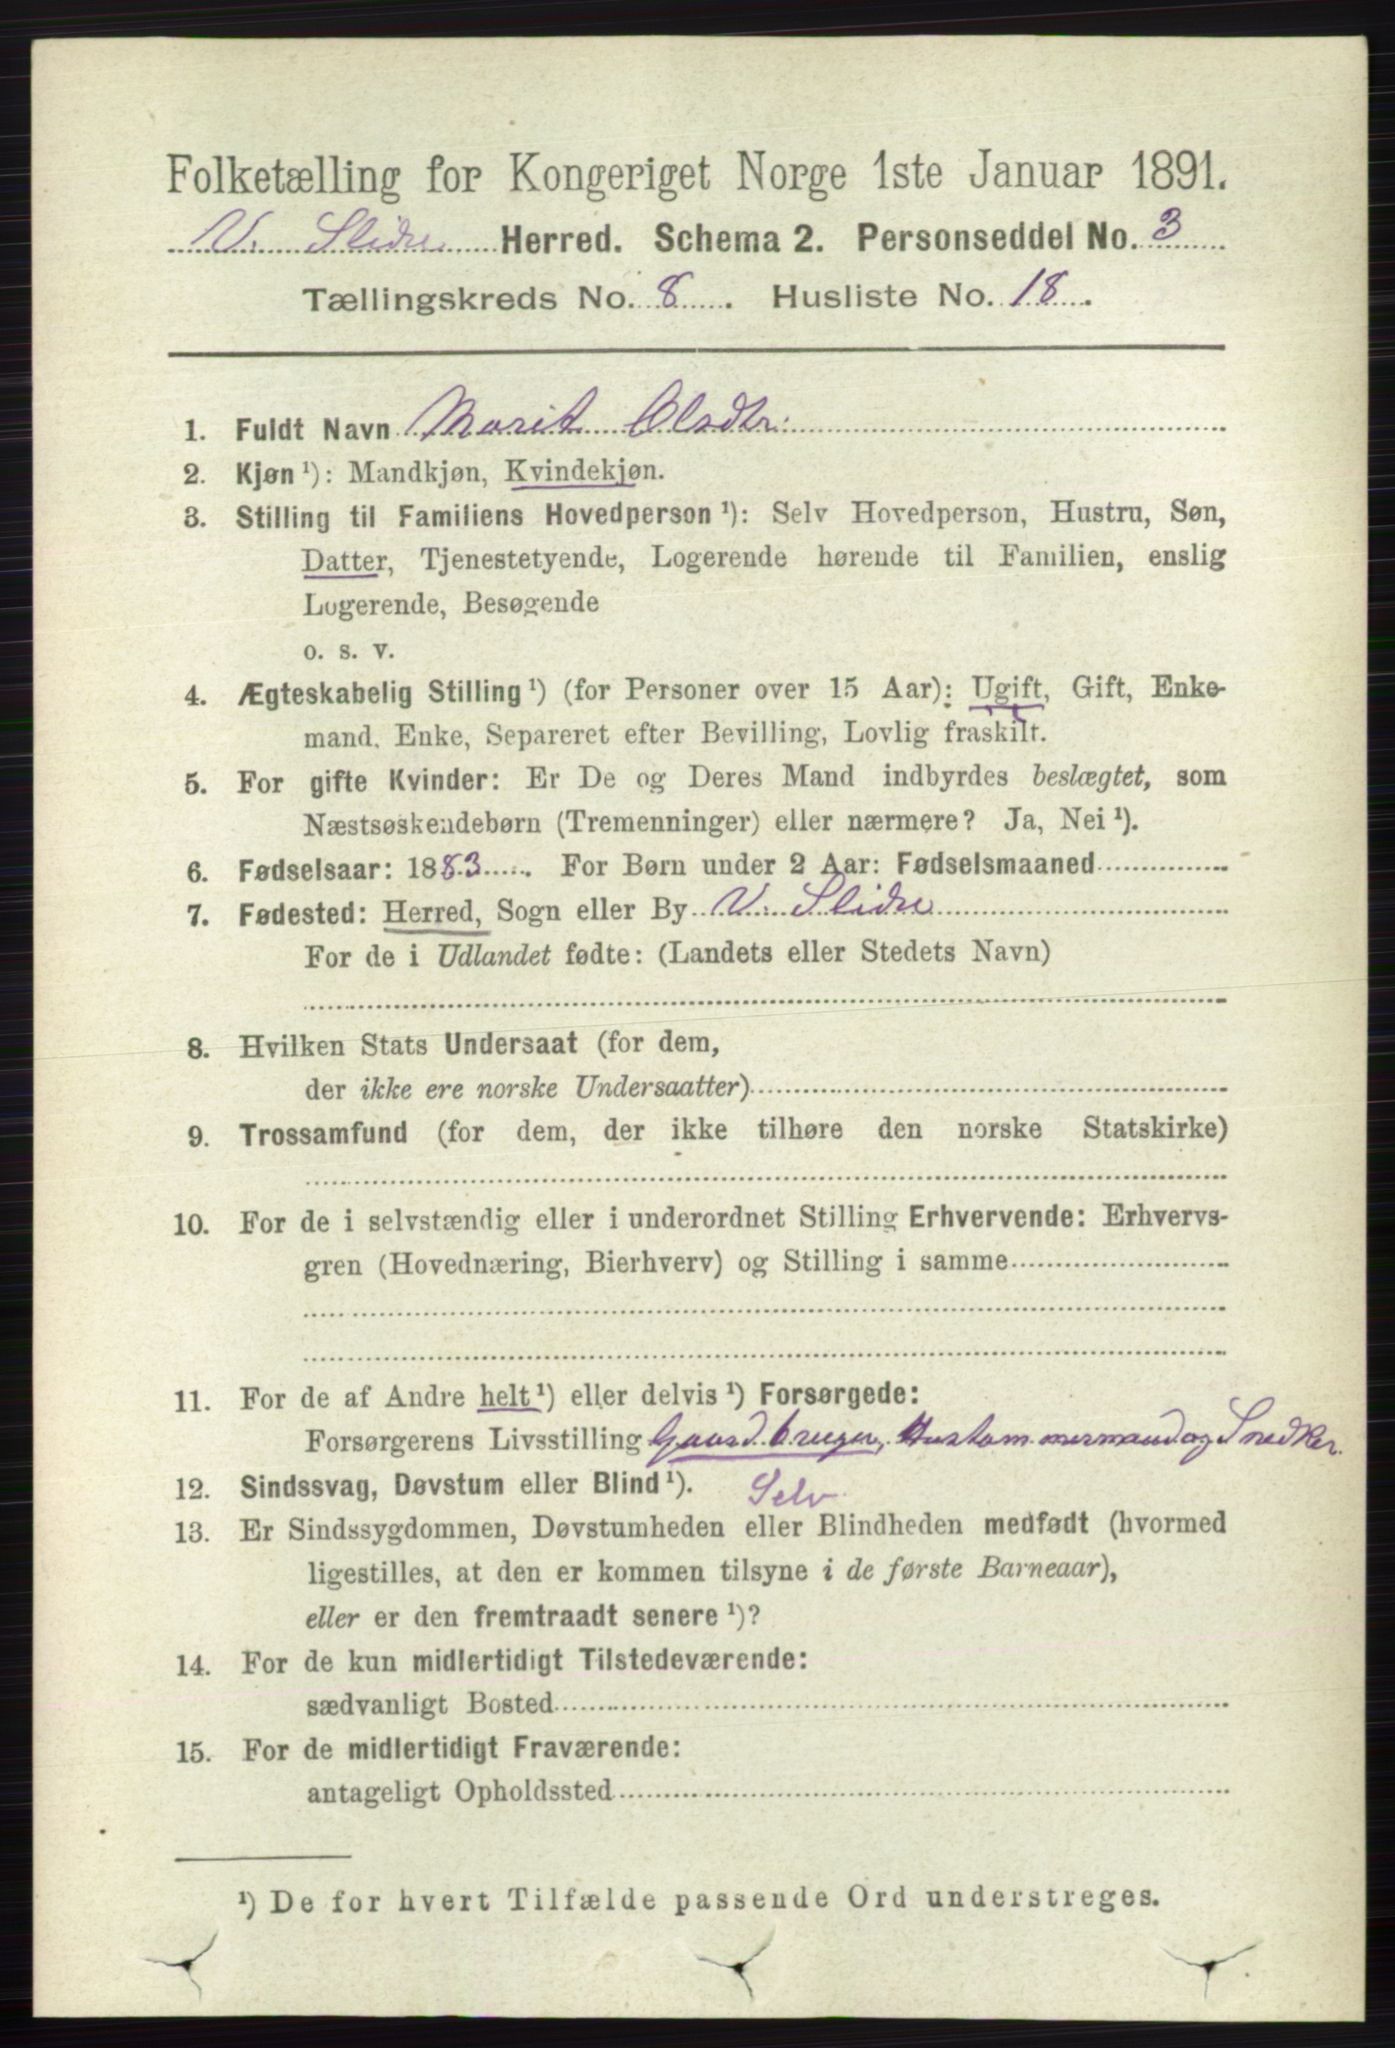 Folketælling for Kongeriget Norge 1ste Januar 1891.
V. Slidre Herred. Schema 2. Personseddel No. 3
Tællingskreds No. 8. Husliste No. 18.
1. Fuldt Navn Marit Olsdtr:
2. Kjøn ¹): Mandkjøn, Kvindekjøn.
3. Stilling til Familiens Hovedperson ¹): Selv Hovedperson, Hustru, Søn,
Datter, Tjenestetyende, Logerende hørende til Familien, enslig
Logerende, Besøgende
o. s. v.
4. Ægteskabelig Stilling ¹) (for Personer over 15 Aar): Ugift, Gift, Enke-
mand, Enke, Separeret efter Bevilling, Lovlig fraskilt.
5. For gifte Kvinder: Er De og Deres Mand indbyrdes beslægtet, som
Næstsøskendebørn (Tremenninger) eller nærmere? Ja, Nei ¹).
6. Fødselsaar: 1883. For Børn under 2 Aar: Fødselsmaaned
7. Fødested: Herred, Sogn eller By V. Slidre
For de i Udlandet fødte: (Landets eller Stedets Navn)
8. Hvilken Stats Undersaat (for dem,
der ikke ere norske Undersaatter)
9. Trossamfund (for dem, der ikke tilhøre den norske Statskirke)
10. For de i selvstændig eller i underordnet Stilling Erhvervende: Erhvervs-
gren (Hovednæring, Bierhverv) og Stilling i samme
11. For de af Andre helt ¹) eller delvis ¹) Forsørgede:
Forsørgerens Livsstilling Gaardbruger, og Snedker.
12. Sindssvag, Døvstum eller Blind ¹). Selv
13. Er Sindssygdommen, Døvstumheden eller Blindheden medfødt (hvormed
ligestilles, at den er kommen tilsyne i de første Barneaar),
eller er den fremtraadt senere ¹)?
14. For de kun midlertidigt Tilstedeværende:
sædvanligt Bosted
15. For de midlertidigt Fraværende:
antageligt Opholdssted
¹) De for hvert Tilfælde passende Ord understreges.